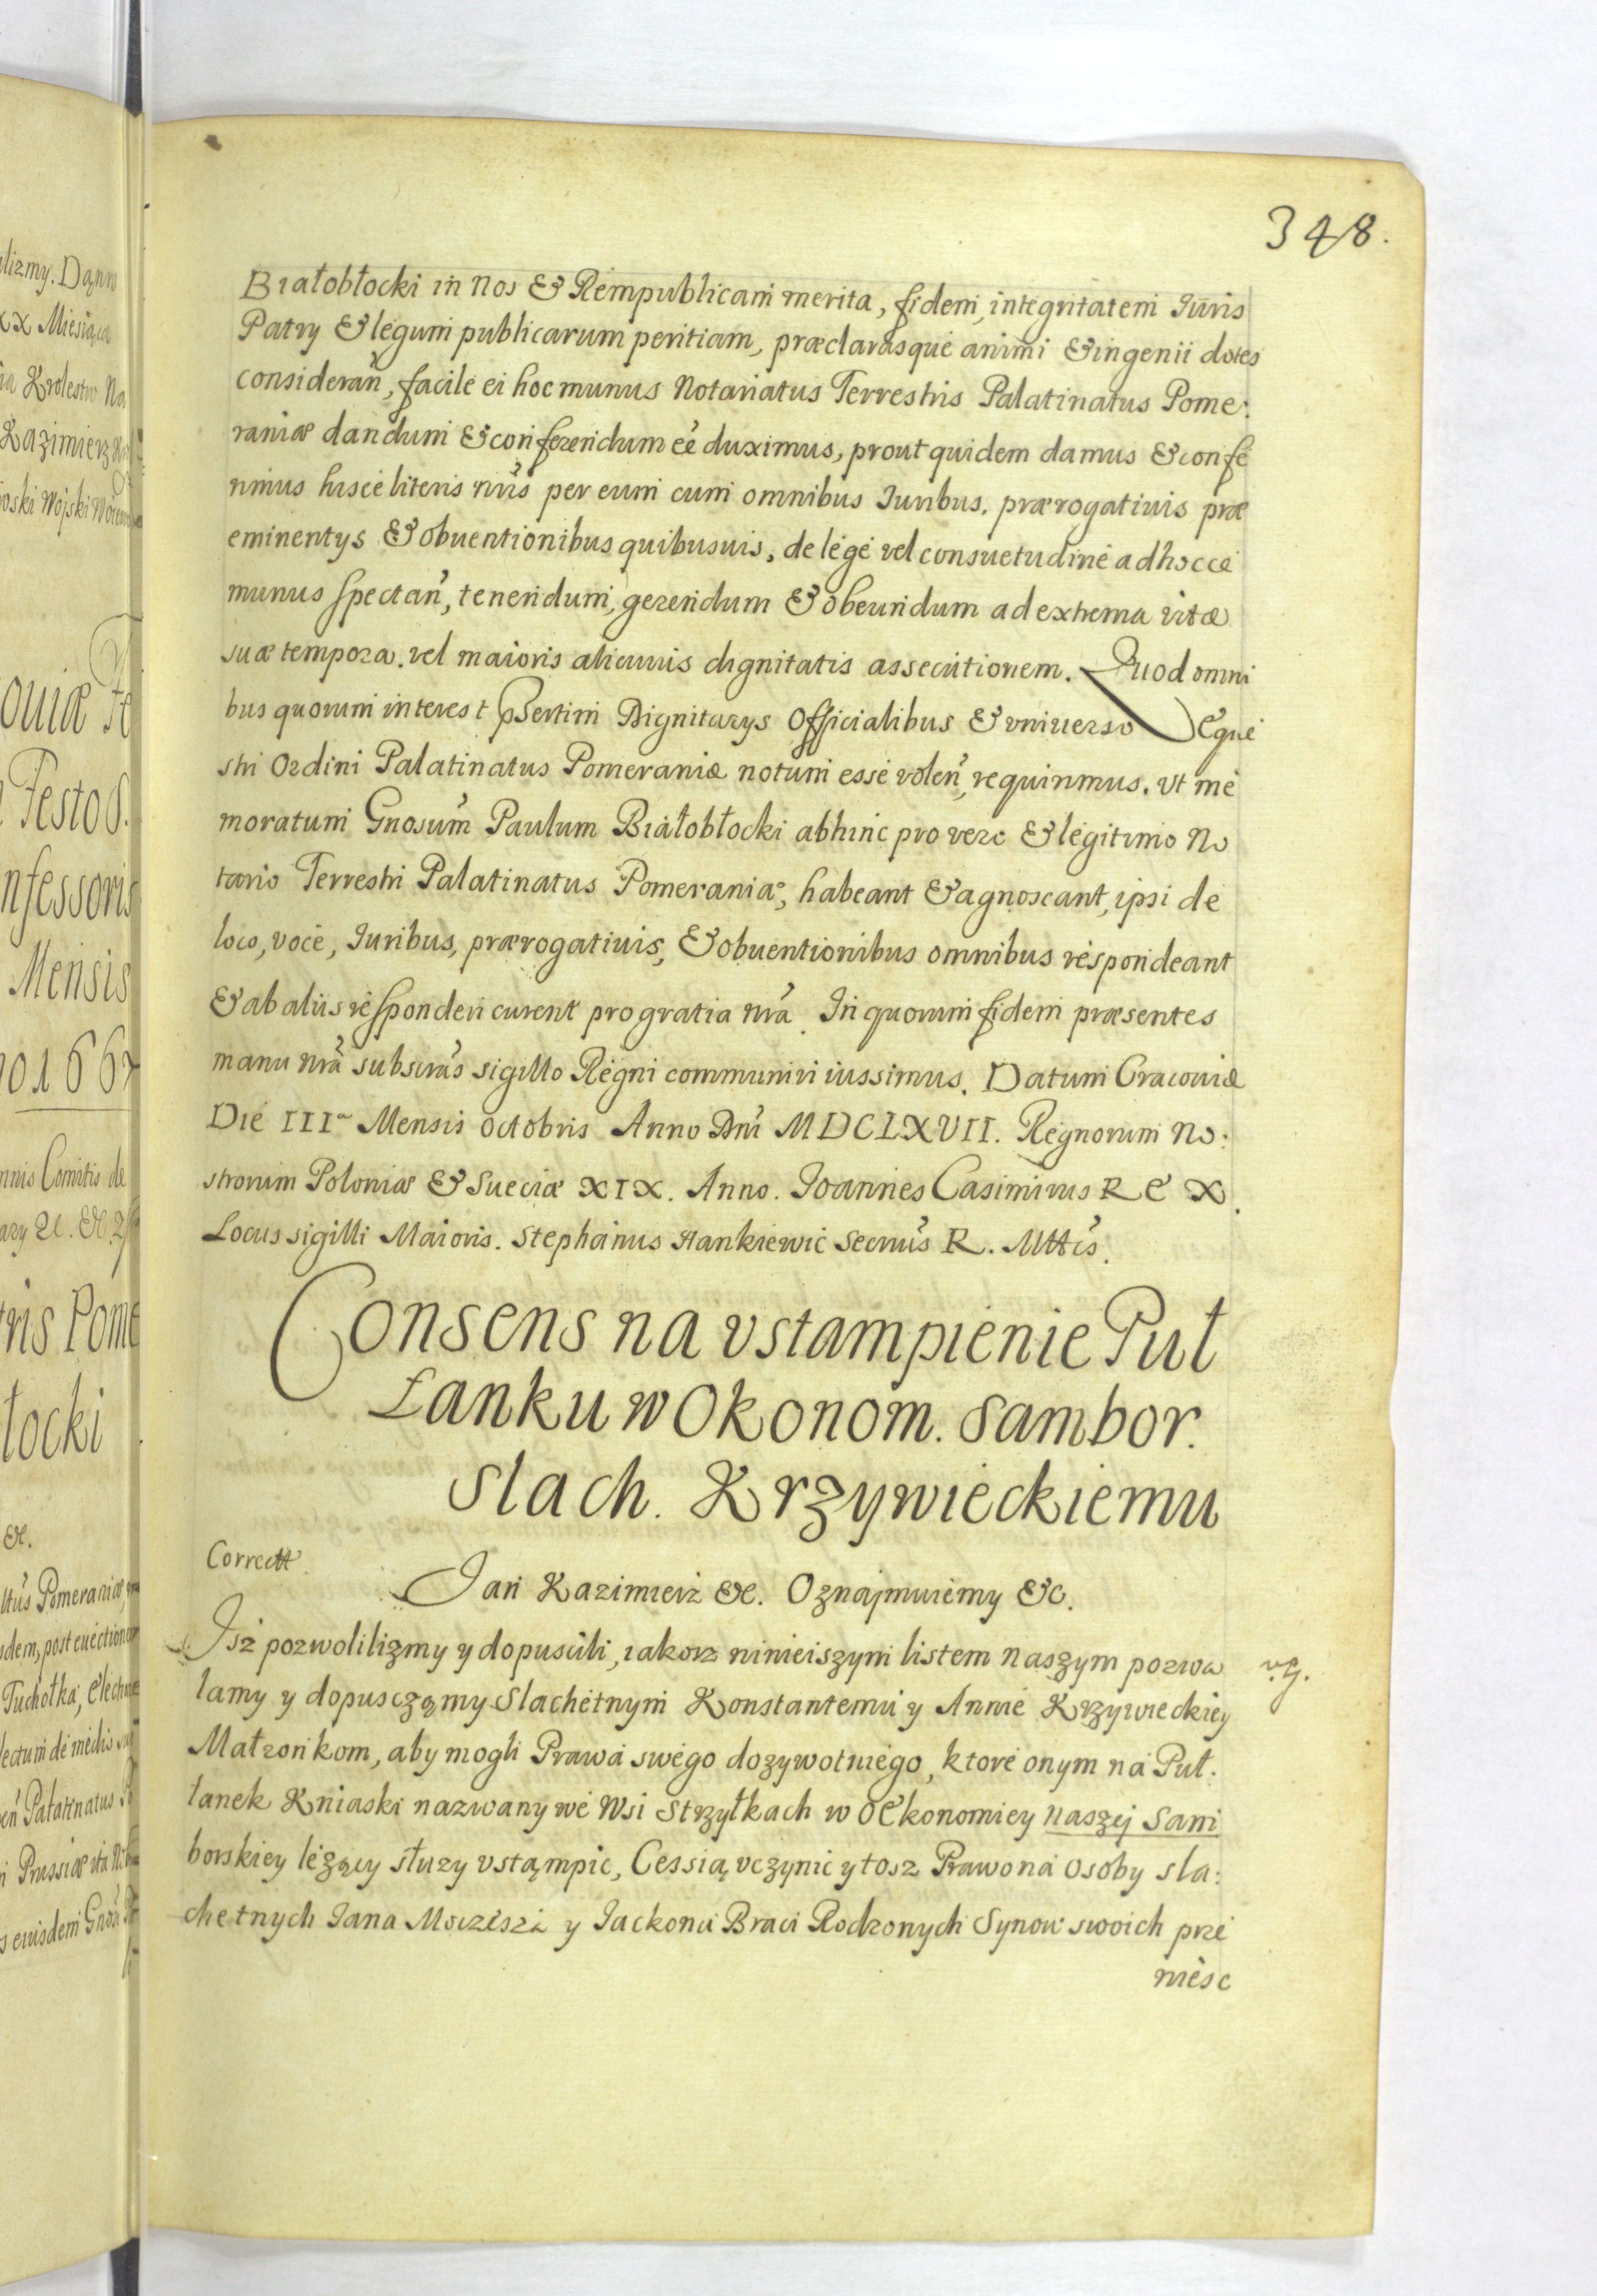 348.
Białobłocki in Nos & Rempublicam merita, fidem, integritatem Iuris
Patry & legum publicarum peritiam, præclarasque animi & ingenii dotes
considerañ, facile ei hoc munus Notariatus Terrestris Palatinatus Pome:
raniæ dandum & conferendum eẽ duximus, prout quidem damus & confe
rimus hisce literis nr̃is per eum cum omnibus Iuribus, prærogativis præ
eminentys & obuentionibus quibusuis, de lege vel consuetudine ad hocce
munus spectañ, tenendum, gerendum & obeundum ad extrema vitæ
suæ tempora. vel maioris alicuius dignitatis assecutionem. Quod omni
bus quorum interest p̃sertim Dignitarys Officialibus & vniuerso Eque
stri Ordini Palatinatus Pomeraniæ notum esse voleñ, requirimus. vt me
moratum Gnosum̃ Paulum Białobłocki abhinc pro vero & legitimo No
tario Terrestri Palatinatus Pomeraniæ, habeant & agnoscant, ipsi de
loco, voce, Iuribus, prærogatiuis, & obuentionibus omnibus respondeant
& ab aliis responderi curent pro gratia nr̃a. In quorum fidem præsentes
manu nr̃a subscr̃as sigillo Regni communiri iussimus. Datum Cracouiæ
Die III~ Mensis Octobris Anno Dñi MDCLXVII. Regnorum No:
strorum Poloniæ & Sueciæ XIX. Anno. Joannes Casimirus REX.
Locus sigilli Maioris. Stephanus Hankiewic Secr̃ius R. Mttis̃.
Consens na vstampienie Puł
Łanku w Okonom. Sambor.
Slach. Krzywieckiemu
Correctt
Jan Kazimierz &c. Oznajmuiemy &c.
Jsz pozwolilizmy y dopuscili, iakosz ninieiszym listem Naszym pozwa
v.g.
lamy y dopusczamy Slachetnym Konstantemu y Annie Krzywieckiey
Małzonkom, aby mogli Prawa swego dozywotniego, ktore onym na Puł.
łanek Kniaski nazwany we Wsi Strzyłkach w OEkonomiey naszej Sam
borskiey lezący słuzy vstąmpic, Cessią vczynic y tosz Prawo na Osoby sla:
chetnych Iana Msczisza y Iackona Braci Rodzonych Synow swoich prze
niesc